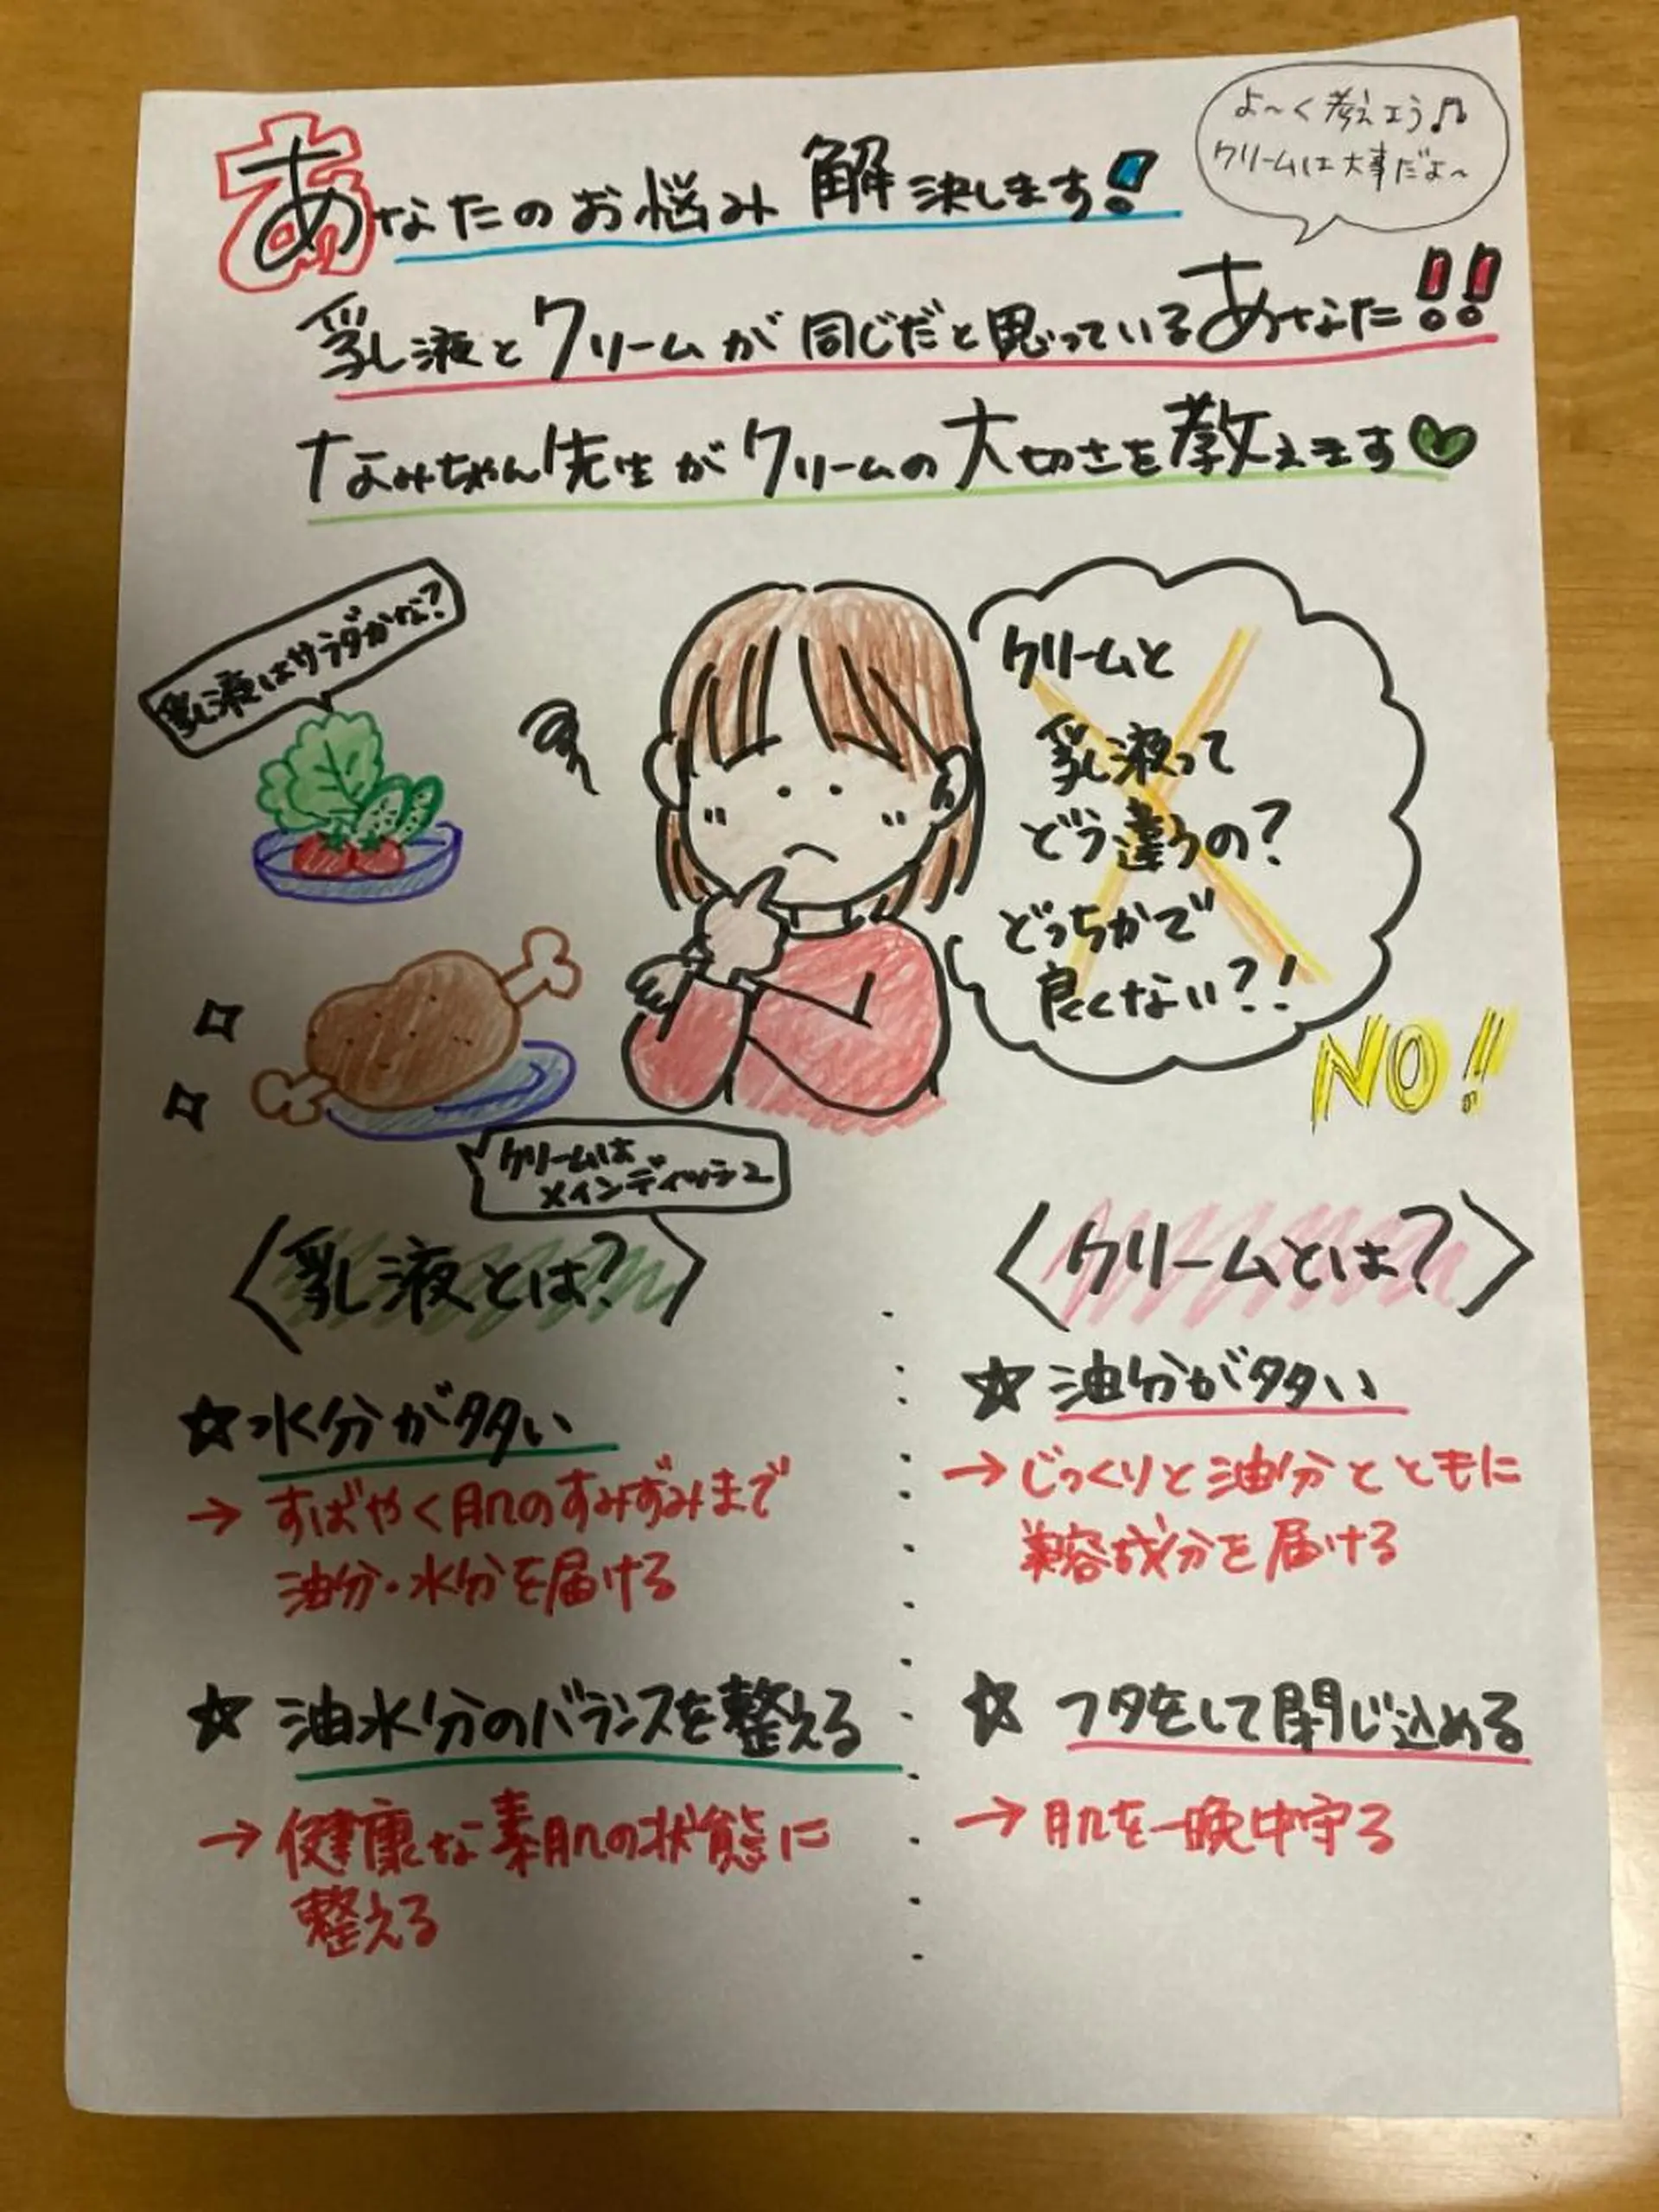 あなたのお悩み解決します!
よ～く考えよう♫
クリームは大事だよ～
乳液とクリームが同じだと思っているあなた!!
なみちゃん先生がクリームの大切さを教えます
乳液はサラダかな?
クリームと
乳液って
どう違うの?
どっちかで
良くない?!
NO!!
クリームは
メインディッシュ
〈乳液とは?〉
☆水分が多い
→すばやく肌のすみずみまで
油分・水分を届ける
☆油水分のバランスを整える
→健康な素肌の状態に
整える
〈クリームとは?〉
☆油分が多い
→じっくりと油分とともに
美容成分を届ける
☆フタをして閉じ込める
→肌を一晩中守る